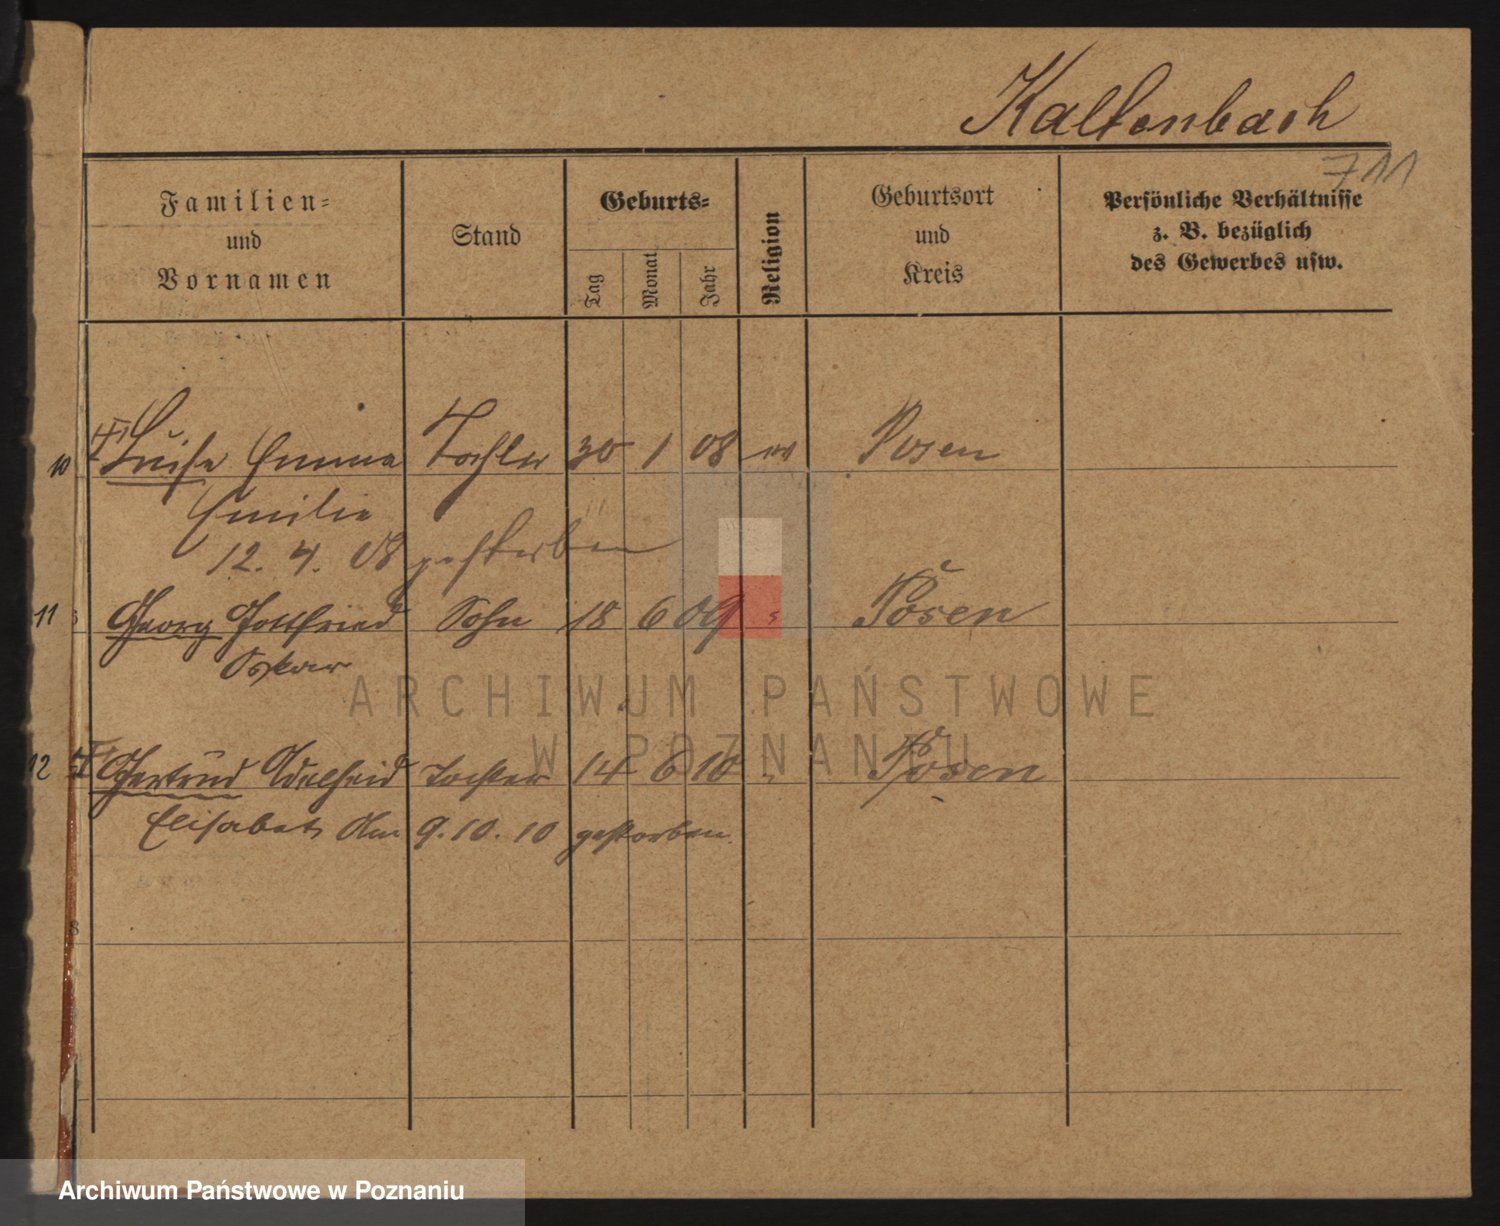 Kaltenbach
711
Familien-
und
Vornamen
Stand
Geburts-
Tag
Monat
Jahr
Religion
Geburtsort
und
Kreis
Persönliche Verhältnisse
z. B. bezüglich
des Gewerbes usw.
10 Luise Emma Tochter 30 1 08 ev Posen
Emilie
12. 4. 08 gestorben
11 Georg Gottfried Sohn 18 6 09 " Posen
Oskar
12 Gertrud Adelheid Tochter 14 6 10 " Posen
Elisabeth Am 9. 10. 10 gestorben.
8
ARCHIWUM PAŃSTWOWE
W POZNANIU
Archiwum Państwowe w Poznaniu